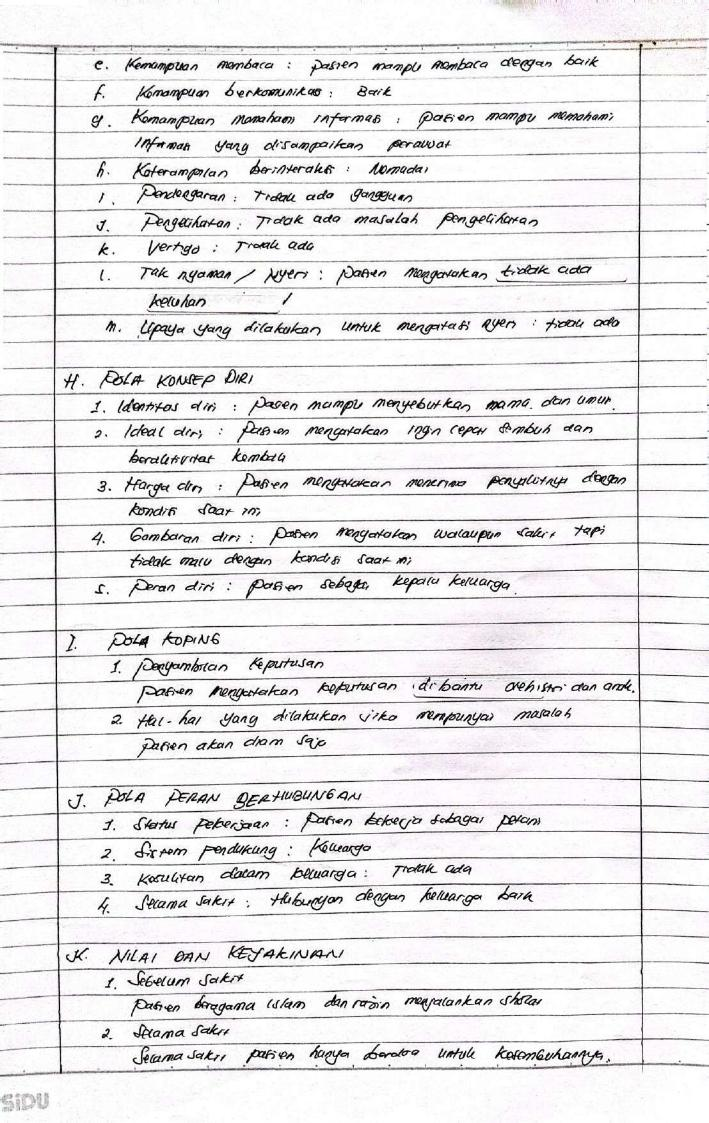 e. Kemampuan membaca : pasien mampu membaca dengan baik
f. Kemampuan berkomunikasi : Baik
g. Kemampuan memahami informasi : pasien mampu memahami
informasi yang disampaikan perawat
h. Keterampilan berinteraksi : Memadai
i. Pendengaran : Tidak ada gangguan
j. Pengelihatan : Tidak ada masalah pengelihatan
k. Vertigo : Tidak ada
l. Tak nyaman / Nyeri : pasien mengatakan tidak ada
keluhan /
m. Upaya yang dilakukan untuk mengatasi nyeri : tidak ada
H. POLA KONSEP DIRI
1. Identitas diri : pasien mampu menyebutkan nama dan umur
2. Ideal diri : pasien mengatakan ingin cepat sembuh dan
beraktivitas kembali
3. Harga diri : pasien mengatakan menerima penyakitnya dengan
kondisi saat ini
4. Gambaran diri : pasien mengatakan walaupun sakit tapi
tidak malu dengan kondisi saat ini
5. Peran diri : pasien sebagai kepala keluarga.
I. POLA KOPING
1. Pengambilan keputusan
pasien mengatakan keputusan dibantu oleh istri dan anak.
2. Hal-hal yang dilakukan jika mempunyai masalah
pasien akan diam saja
J. POLA PERAN BERHUBUNGAN
1. Status pekerjaan : pasien bekerja sebagai petani
2. Sistem pendukung : Keluarga
3. Kesulitan dalam keluarga : Tidak ada
4. Selama sakit : Hubungan dengan keluarga baik
K. NILAI DAN KEYAKINAN
1. Sebelum sakit
pasien beragama islam dan rajin menjalankan sholat
2. Selama sakit
Selama sakit pasien hanya berdoa untuk kesembuhannya.
SiDU